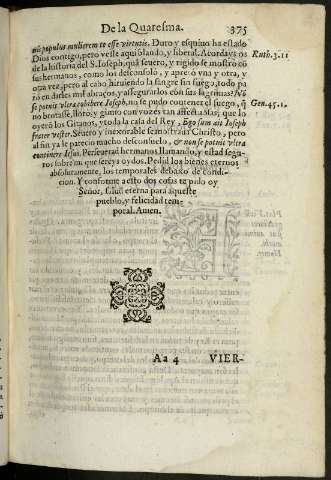 De la Quaresma. 375
nis populus mulierem te esse virtutis. Duro y esquiuo ha estado
Dios contigo, pero vesle aqui blando, y liberal. Acordays os
de la historia del S. Ioseph, quã seuero, y rigido se mostro cõ
sus hermanos, como los desconsolò, y apretò vna y otra, y
otra vez, pero al cabo hiruiendo la sangre sin fuego, todo pa
rò en darles mil abraços, y assegurarlos con sus lagrimas? Nõ
se potuit vltra cohibere Ioseph, no se pudo contener el fuego, q̃
no brotasse, lloro y gimio con vozes tan affectuosas, que lo
oyerõ los Gitanos, y toda la casa del Rey, Ego sum ait Ioseph
frater vester. Seuero y inexorable se mostraua Christo, pero
al fin ya le parecio mucho desconsuelo, & non se potuit vltra
continere Iesus. Perseuerad hermanos llamando, y estad segu-
ros sobre mi que sereys oydos. Pedid los bienes eternos
absolutamente, los temporales debaxo de condi-
cion. Y conforme a esto dos cosas te pido oy
Señor, salud eterna para aqueste
pueblo, y felicidad tem-
poral. Amen.
Ruth. 3. 11
Gen. 45. 1.
Aa 4 VIER-